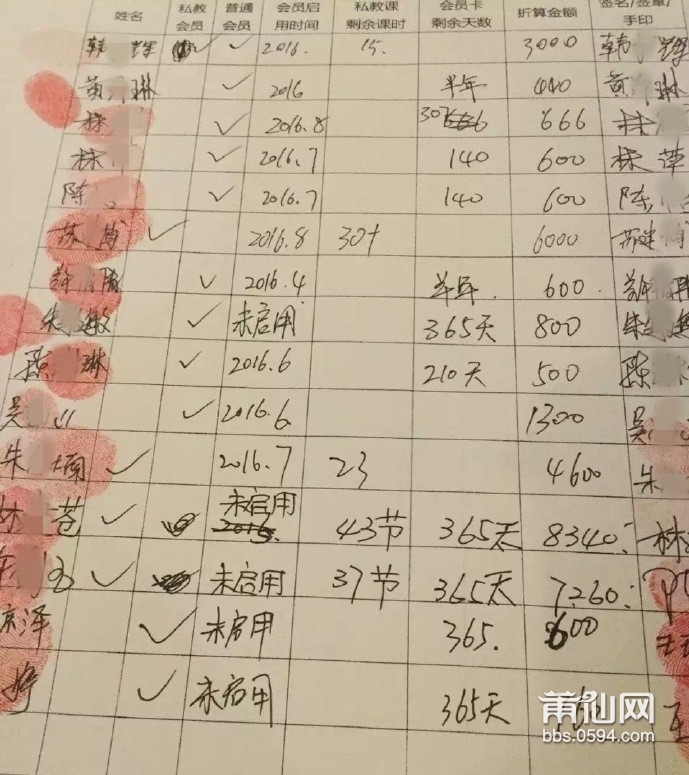 姓名 私教会员 普通会员 会员启用时间 私教课剩余课时 会员卡剩余天数 折算金额 签名/签单/手印
韩 辉 ✓ ✓ 2016. 15. 3000 韩 辉
黄 琳 ✓ 2016 半年 440 黄 琳
林 ✓ 2016.8 666 林
林 ✓ 2016.7 140 600 林 萍
陈 ✓ 2016.7 140 600 陈
苏 博 ✓ 2016.8 30节 6000 苏建 博
✓ 2016.4 半年. 600.
朱 敏 ✓ 未启用 365天 800 朱
陈 琳 ✓ 2016.6 210天 500 陈
吴 ✓ 2016.6 1300 吴
朱 ✓ 2016.7 23 4600 朱
林 苍 ✓ 未启用 43节 365天 8340 林
✓ 未启用 37节 365天 7260
泽 ✓ 未启用 365. 600 王
婷 ✓ 未启用 365天 王
莆仙网
bbs.0594.com